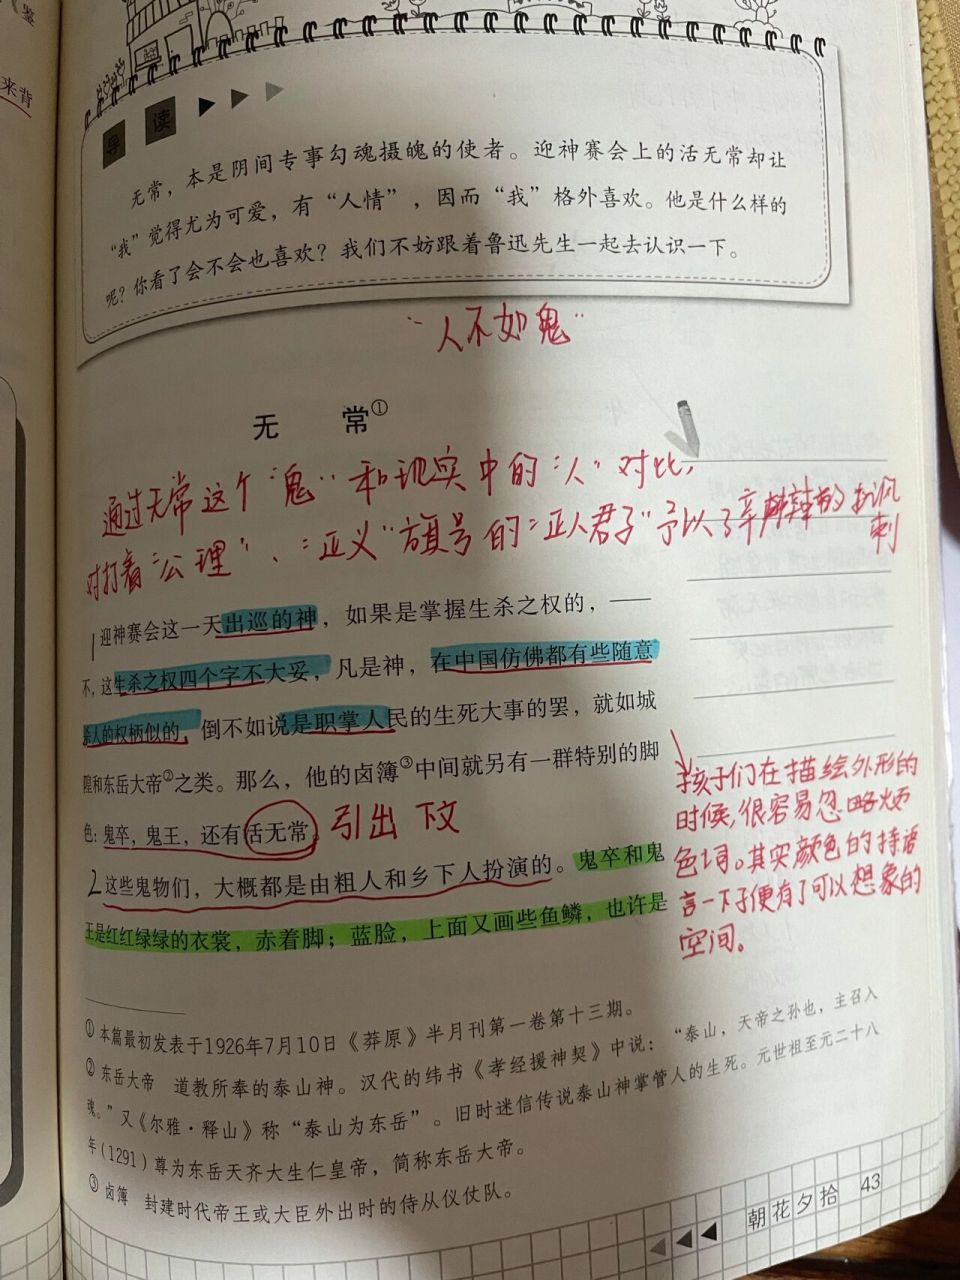 《鉴
来背
导读
无常，本是阴间专事勾魂摄魄的使者。迎神赛会上的活无常却让
“我”觉得尤为可爱，有“人情”，因而“我”格外喜欢。他是什么样的
呢？你看了会不会也喜欢？我们不妨跟着鲁迅先生一起去认识一下。
“人不如鬼”
无 常①
通过无常这个“鬼”和现实中的“人”对比，
对打着“公理”、“正义”旗号的“正人君子”予以了辛辣的讽
刺
1迎神赛会这一天出巡的神，如果是掌握生杀之权的，——
不，这生杀之权四个字不大妥，凡是神，在中国仿佛都有些随意
杀人的权柄似的，倒不如说是职掌人民的生死大事的罢，就如城
隍和东岳大帝②之类。那么，他的卤簿③中间就另有一群特别的脚
色：鬼卒，鬼王，还有活无常。引出下文
2这些鬼物们，大概都是由粗人和乡下人扮演的。鬼卒和鬼
王是红红绿绿的衣裳，赤着脚；蓝脸，上面又画些鱼鳞，也许是
孩子们在描绘外形的
时候，很容易忽略颜
色词。其实颜色的持语
言一下子便有了可以想象的
空间。
① 本篇最初发表于1926年7月10日《莽原》半月刊第一卷第十三期。
② 东岳大帝 道教所奉的泰山神。汉代的纬书《孝经援神契》中说：“泰山，天帝之孙也，主召人
魂。”又《尔雅·释山》称“泰山为东岳”。旧时迷信传说泰山神掌管人的生死。元世祖至元二十八
年（1291）尊为东岳天齐大生仁皇帝，简称东岳大帝。
③ 卤簿 封建时代帝王或大臣外出时的侍从仪仗队。
朝花夕拾 43